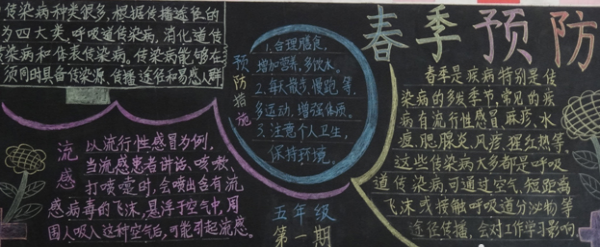 传染病种类很多，根据传播途径的
为四大类，呼吸道传染病，消化道传
染病和体表传染病，传染病能够在
须同时具备传染源，传播途径和易感人群
预防措施
1.合理膳食，
增加营养，多饮水。
2.每天散步，慢跑，等，
多运动，增强体质。
3.注意个人卫生，
保持环境。
春季预防
春季是疾病特别是传
染病的多发季节，常见的疾
病有流行性感冒，麻疹，水
痘，腮腺炎，风疹，猩红热等。
这些传染病大多都是呼吸
道传染病可通过空气，短距离
飞沫或接触呼吸道分泌物等
途径传播，会对工作学习影响
流感
以流行性感冒为例，
当流感患者讲话，咳嗽，
打喷嚏时，会喷出含有流
感病毒的飞沫，悬浮于空气中，周
围人吸入这种空气后，可能引起流感。
五年级
第一期